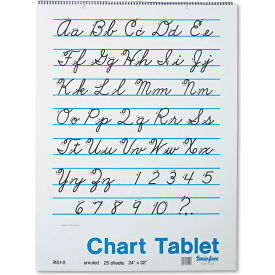 Aa Bb Cc Dd Ee
Ff Gg Hh Ii Jj
Kk Ll Mm Nn
Oo Pp Qq Rr Ss
Tt Uu Vv Ww Xx
Yy Zz 1 2 3 4 5
6 7 8 9 10 ? .
Chart Tablet
unruled 25 sheets 24" x 32"